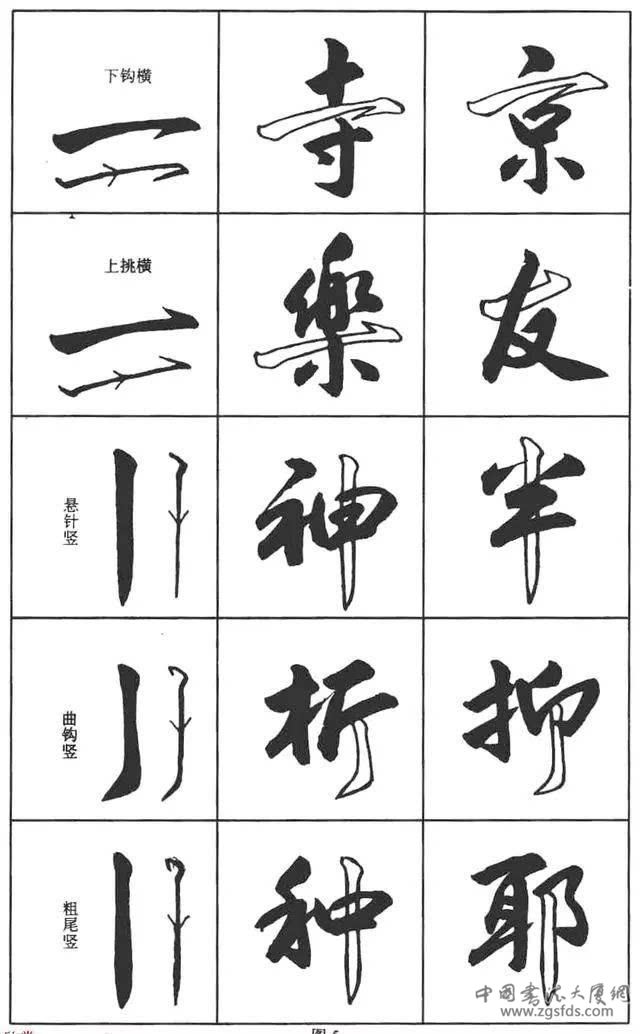 下钩横
寺
京
上挑横
樂
友
悬针竖
神
半
曲钩竖
析
抑
粗尾竖
种
耶
中國書法大厦網
www.zgsfds.com